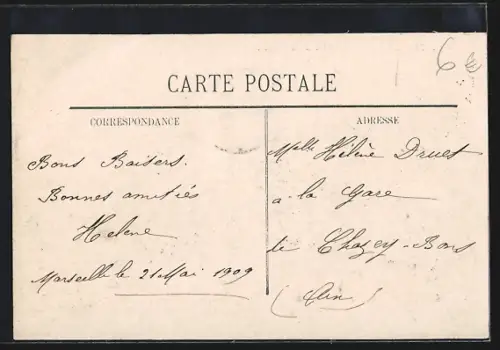 6€
CARTE POSTALE
CORRESPONDANCE
Bons Baisers.
Bonnes amitiés
Helene
Marseille le 21 Mai 1909
ADRESSE
Melle Hélène Druet
a la Gare
de Chazey-Bons
(Ain)